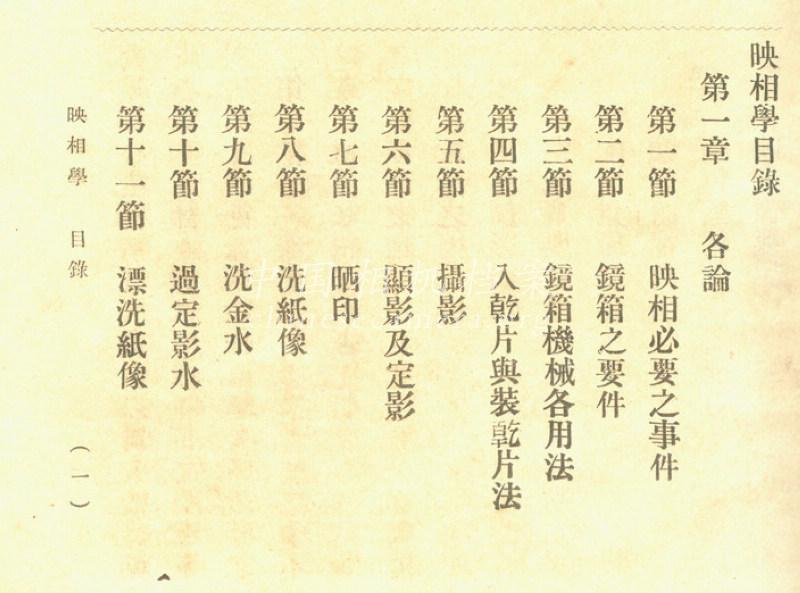 映相學目錄
第一章 各論
第一節 映相必要之事件
第二節 鏡箱之要件
第三節 鏡箱機械各用法
第四節 入乾片與裝乾片法
第五節 攝影
第六節 顯影及定影
第七節 晒印
第八節 洗紙像
第九節 洗金水
第十節 過定影水
第十一節 漂洗紙像
映相學 目錄 (一)